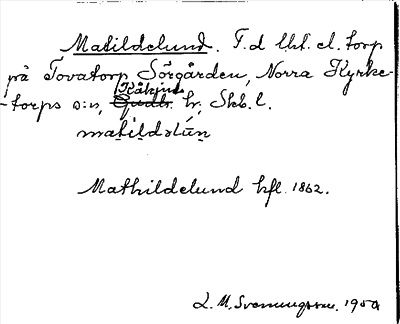 Matildelund. F.d. lht. el. torp
på Tovatorp Sörgården, Norra Kyrke-
-torps s:n, Kåkinds hr, Skb. l.
matildəlún
Mathildelund hfl. 1862.
L. M. Svenungsson. 1950